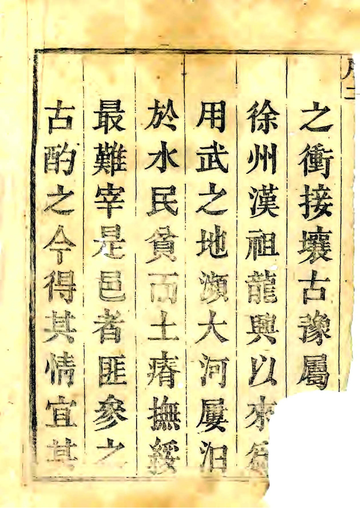 之衝接壤古豫屬
徐州漢祖龍興以來
用武之地瀕大河屢汨
於水民貧而土瘠撫綏
最難宰是邑者匪參之
古酌之今得其情宜其